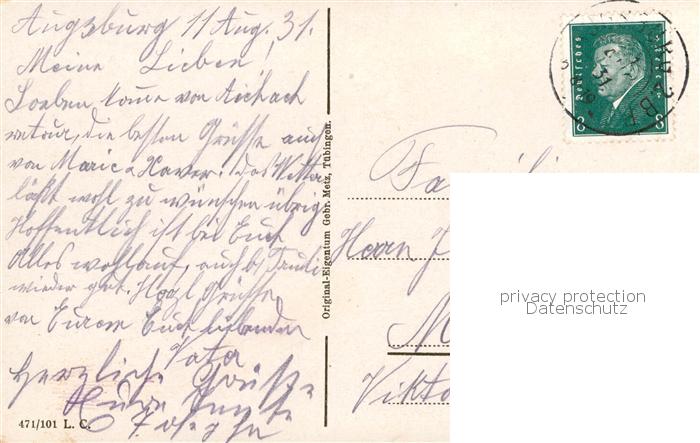 Augsburg 11 Aug. 31.
Meine Lieben!
Soeben komme von Aichach
retour, die besten Grüsse auch
von Marie & Xaver. Das Wetter
läßt wohl zu wünschen übrig.
Hoffentlich ist bei Euch
Alles wohlauf, auch b/ Trudi
wieder gut. Herzl Grüsse
von Eurem Euch liebenden
Vater
Herzliche Grüße
Eure Tante
Josepha
471/101 L. C.
Original-Eigentum Gebr. Metz, Tübingen.
Deutsches Reich
8 8
Fa
Herrn J
M
Vikto
privacy protection
Datenschutz